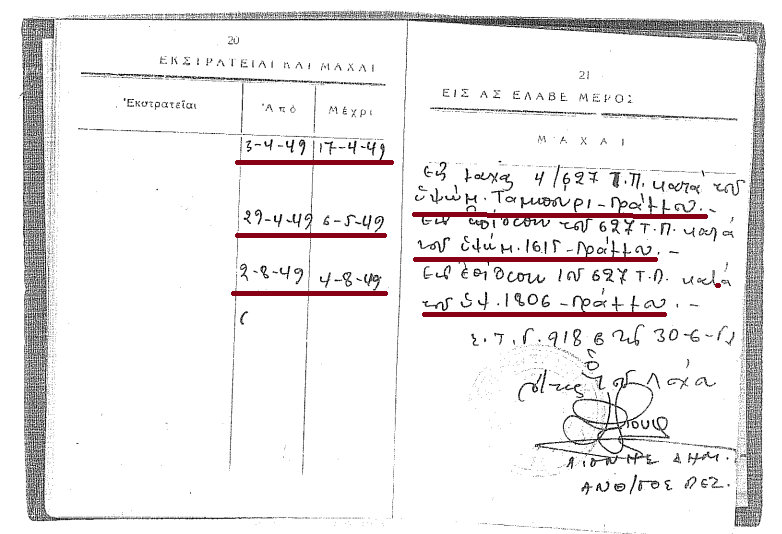 20
ΕΚΣΤΡΑΤΕΙΑΙ ΚΑΙ ΜΑΧΑΙ
Ἐκστρατεῖαι Ἀπὸ Μέχρι
3-4-49 17-4-49
29-4-49 6-5-49
2-8-49 4-8-49
21
ΕΙΣ ΑΣ ΕΛΑΒΕ ΜΕΡΟΣ
ΜΑΧΑΙ
Εἰς μάχας 4/627 Τ.Π. κατά του
ὑψώμ. Ταμπουρι - Γράμμου. -
Εἰς ἐπίθεσιν του 627 Τ.Π. κατά
του ὑψώμ. 1615 - Γράμμου. -
Εἰς ἐπίθεσιν του 627 Τ.Π. κατά
του ὑψ. 1806 - Γράμμου. -
Σ.Τ.Γ. 918 τῇ 30-6-
Ὁ
του Λόχου
ΔΗΜ.
ΑΝΘ/ΓΟΣ ΠΕΖ.